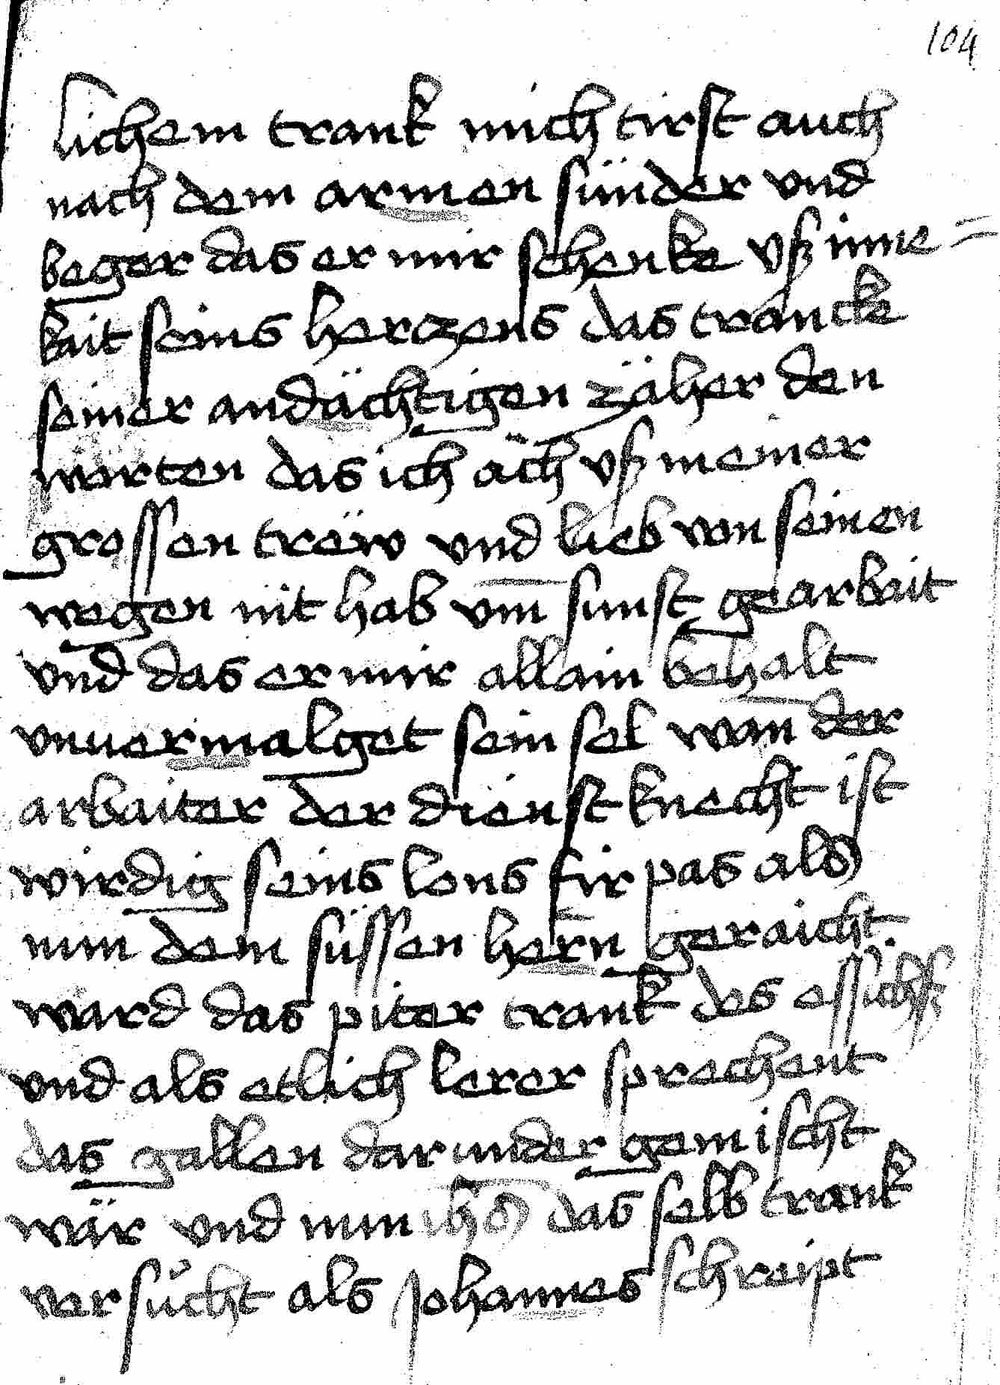 104
lichem trank mich tirst auch
nach dem armen sünder vnd
beger das er mir schenke vß inne=
kait seins herczens das trancke
seiner andächtigen zäher den
worten das ich äch vß meiner
grossen trëw vnd lieb von seinen
wegen nit hab vm sunst gearbait
vnd das er mir allain behalt
vnuermalget sein sel wan der
arbaiter der dienst knecht ist
wirdig seins lons fir pas als
nun dem süssen hern geraicht
ward das piter trank des essichß
vnd als etlich lerer sprechent
das gallen dar vnder gemischt
wär vnd nun ihs das selb trank
versücht als Johannes schreipt